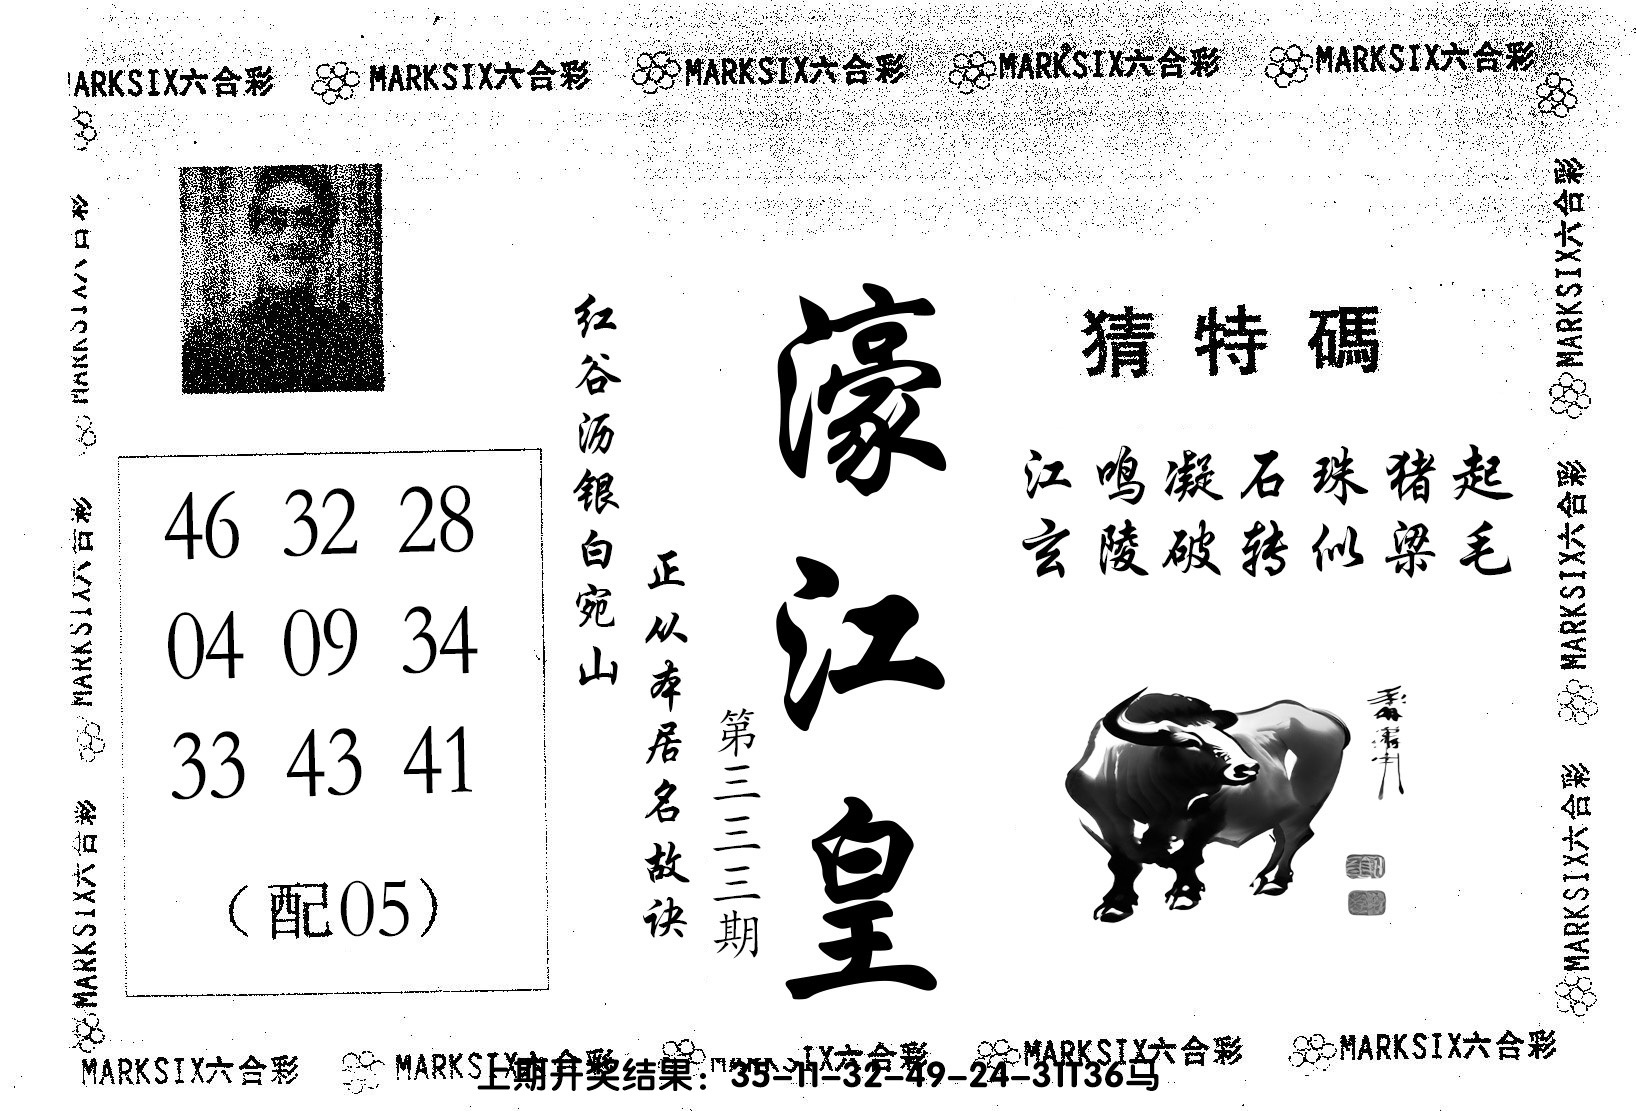 MARKSIX六合彩 MARKSIX六合彩 MARKSIX六合彩 MARKSIX六合彩 MARKSIX六合彩
猜特碼
江鸣凝石珠猪起
玄陵破转似梁毛
濠江皇
第三三三期
正从本居名故诀
红谷沥银白宛山
46 32 28
04 09 34
33 43 41
（配05）
MARKSIX六合彩
MARKSIX六合彩
MARKSIX六合彩
MARKSIX六合彩
MARKSIX六合彩
MARKSIX六合彩
MARKSIX六合彩 MARKSIX六合彩 MARKSIX六合彩 MARKSIX六合彩
上期开奖结果：35-11-32-49-24-31T36马